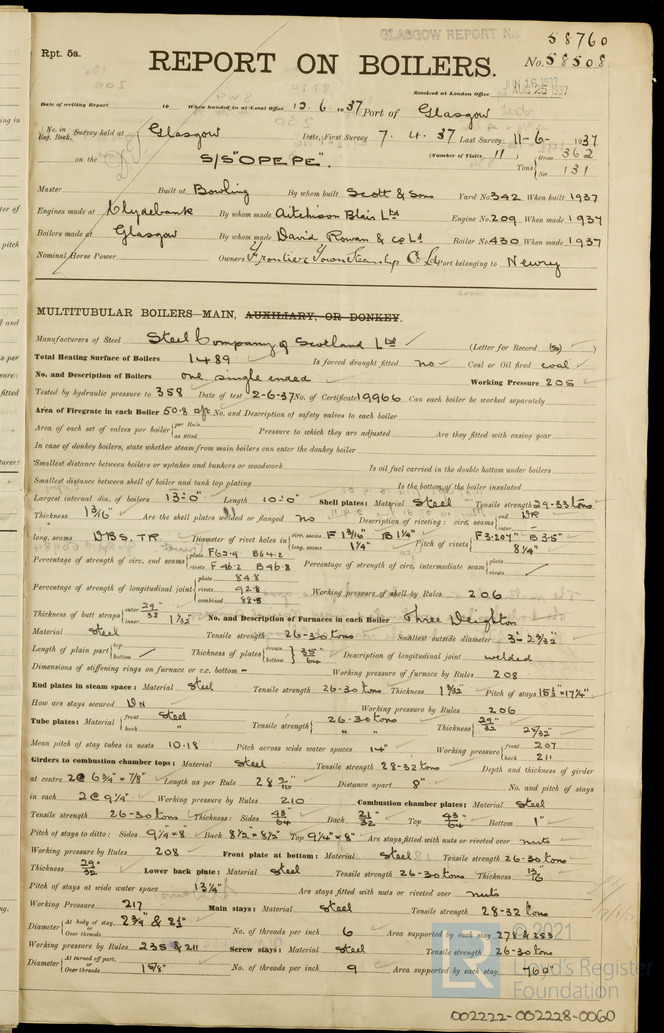 GLASGOW REPORT No
58760
Rpt. 5a.
REPORT ON BOILERS.
No. 58508
Received at London Office JUN 16 1937
AUG 25 1937
Date of writing Report to When handed in at Local Office 12.6.1937 Port of Glasgow
No. in Reg. Book. Survey held at Glasgow Date, First Survey 7.4.37 Last Survey 11-6-1937
on the S/S "OPEPE". (Number of Visits 11) Tons Gross 362 Net 131
Master Built at Bowling By whom built Scott & Sons Yard No. 342 When built 1937
Engines made at Clydebank By whom made Aitchison Blair Ltd Engine No. 209 When made 1937
Boilers made at Glasgow By whom made David Rowan & Co Ld Boiler No. 430 When made 1937
Nominal Horse Power Owners Frontier Town Steamship Co Ld Port belonging to Newry
MULTITUBULAR BOILERS—MAIN, AUXILIARY, OR DONKEY.
Manufacturers of Steel Steel Company of Scotland Ltd (Letter for Record (S))
Total Heating Surface of Boilers 1489 Is forced draught fitted no Coal or Oil fired coal
No. and Description of Boilers one single ended Working Pressure 205
Tested by hydraulic pressure to 358 Date of test 2-6-37 No. of Certificate 19966 Can each boiler be worked separately
Area of Firegrate in each Boiler 50.8 No. and Description of safety valves to each boiler
Area of each set of valves per boiler per Rule as fitted Pressure to which they are adjusted Are they fitted with easing gear
In case of donkey boilers, state whether steam from main boilers can enter the donkey boiler
Smallest distance between boilers or uptakes and bunkers or woodwork Is oil fuel carried in the double bottom under boilers
Smallest distance between shell of boiler and tank top plating Is the bottom of the boiler insulated
Largest internal dia. of boilers 13'-0" Length 10'-0" Shell plates: Material Steel Tensile strength 29-33 tons
Thickness 1 3/16" Are the shell plates welded or flanged no Description of riveting: circ. seams end DR inter.
long. seams DBS. TR Diameter of rivet holes in circ. seams F 1 3/16" B 1 1/4" long. seams 1 1/4" Pitch of rivets F 3.207" B 3.5" 8 1/4"
Percentage of strength of circ. end seams plate F 62.9 B 64.2 rivets F 46.2 B 46.8 Percentage of strength of circ. intermediate seam plate rivets
Percentage of strength of longitudinal joint plate 84.8 rivets 92.8 combined 88.5 Working pressure of shell by Rules 206
Thickness of butt straps outer 29/32 inner 1 1/32" No. and Description of Furnaces in each Boiler Three Deighton
Material Steel Tensile strength 26-30 tons Smallest outside diameter 3'-2 3/32"
Length of plain part top bottom Thickness of plates crown bottom 35/64" Description of longitudinal joint welded
Dimensions of stiffening rings on furnace or c.c. bottom - Working pressure of furnace by Rules 208
End plates in steam space: Material Steel Tensile strength 26-30 tons Thickness 1 3/32 Pitch of stays 15 1/2" x 17 1/4"
How are stays secured DN Working pressure by Rules 206
Tube plates: Material front Steel back " Tensile strength 26-30 tons " " Thickness 29/32 25/32"
Mean pitch of stay tubes in nests 10.18 Pitch across wide water spaces 14" Working pressure front 207 back 211
Girders to combustion chamber tops: Material Steel Tensile strength 28-32 tons Depth and thickness of girder
at centre 2@ 6 3/4" x 7/8" Length as per Rule 28 9/16" Distance apart 8" No. and pitch of stays
in each 2@ 9 1/4" Working pressure by Rules 210 Combustion chamber plates: Material Steel
Tensile strength 26-30 tons Thickness: Sides 43/64 Back 21/32 Top 43/64 Bottom 1"
Pitch of stays to ditto: Sides 9 1/4" x 8" Back 8 1/2" x 8 1/2" Top 9 1/4" x 8" Are stays fitted with nuts or riveted over nuts
Working pressure by Rules 208 Front plate at bottom: Material Steel Tensile strength 26-30 tons
Thickness 29/32 Lower back plate: Material Steel Tensile strength 26-30 tons Thickness 13/16
Pitch of stays at wide water space 13 3/4" Are stays fitted with nuts or riveted over nuts
Working Pressure 217 Main stays: Material Steel Tensile strength 28-32 tons
Diameter At body of stay, or Over threads 2 3/4" & 2 1/2" No. of threads per inch 6 Area supported by each stay 278 & 253
Working pressure by Rules 235 & 211 Screw stays: Material Steel Tensile strength 26-30 tons
Diameter At turned off part, or Over threads 1 5/8" No. of threads per inch 9 Area supported by each stay 76
© 2021
LR
Lloyd's Register
Foundation
002222-002228-0060